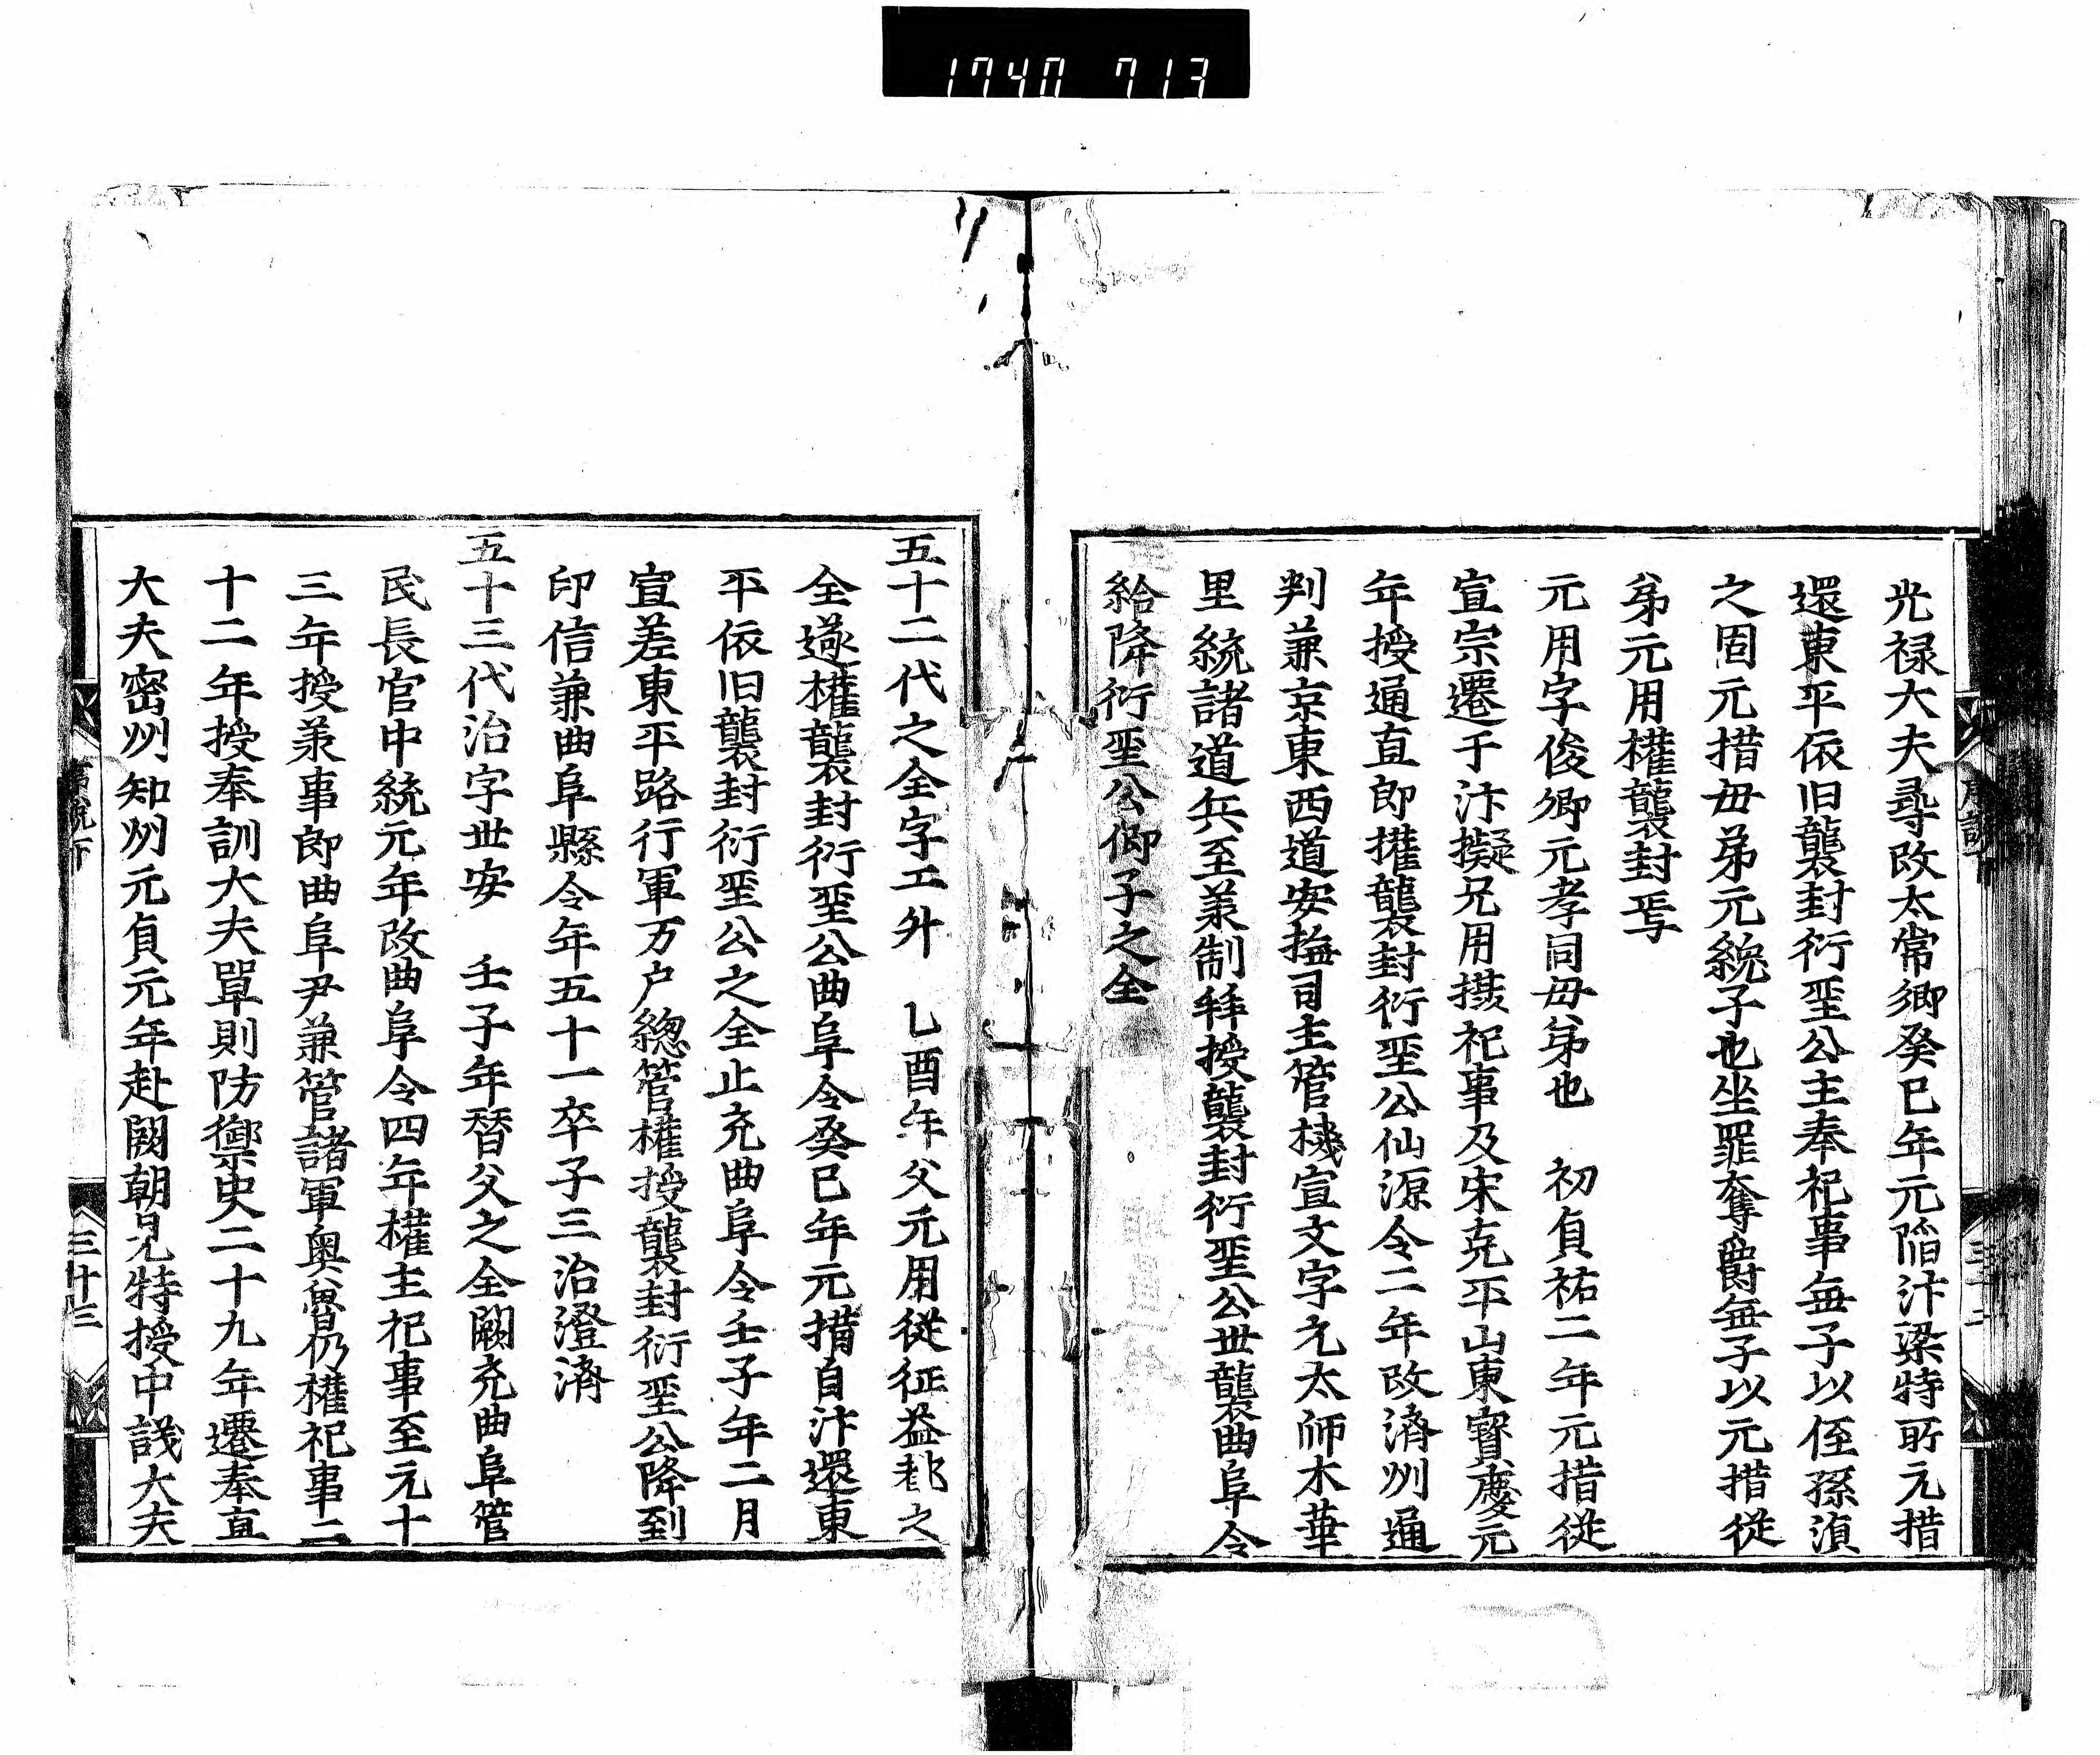 1740 713
光禄大夫尋改太常卿癸巳年元陷汴梁特所元措
還東平依旧襲封衍聖公主奉祀事無子以侄孫湞
之固元措毋弟元紘子也坐罪奪爵無子以元措從
弟元用權襲封焉
元用字俊卿元孝同毋弟也　初貞祐二年元措従
宣宗遷于汴擬兄用摂祀事及宋克平山東寳慶元
年授通直郎權襲封衍聖公仙源令二年改濟州通
判兼京東西道安撫司主管機宣文字元太師木華
里統諸道兵至羕制拜授襲封衍聖公世襲曲阜令
給降衍聖公仰子之全
五十二代之全字工升　乚酉年父元用従征益都之
全遂權襲封衍聖公曲阜令癸巳年元措自汴還東
平依旧襲封衍聖公之全止充曲阜令壬子年二月
宣差東平路行軍万户緫管權授襲封衍聖公降到
印信兼曲阜縣令年五十一卒子三治澄濟
五十三代治字世安　壬子年替父之全闕充曲阜管
民長官中統元年改曲阜令四年權主祀事至元十
三年授羕事郎曲阜尹兼管諸軍奥魯仍權祀事二
十二年授奉訓大夫單則防禦史二十九年遷奉直
大夫密州知州元貞元年赴闕朝見特授中議大夫
三十三